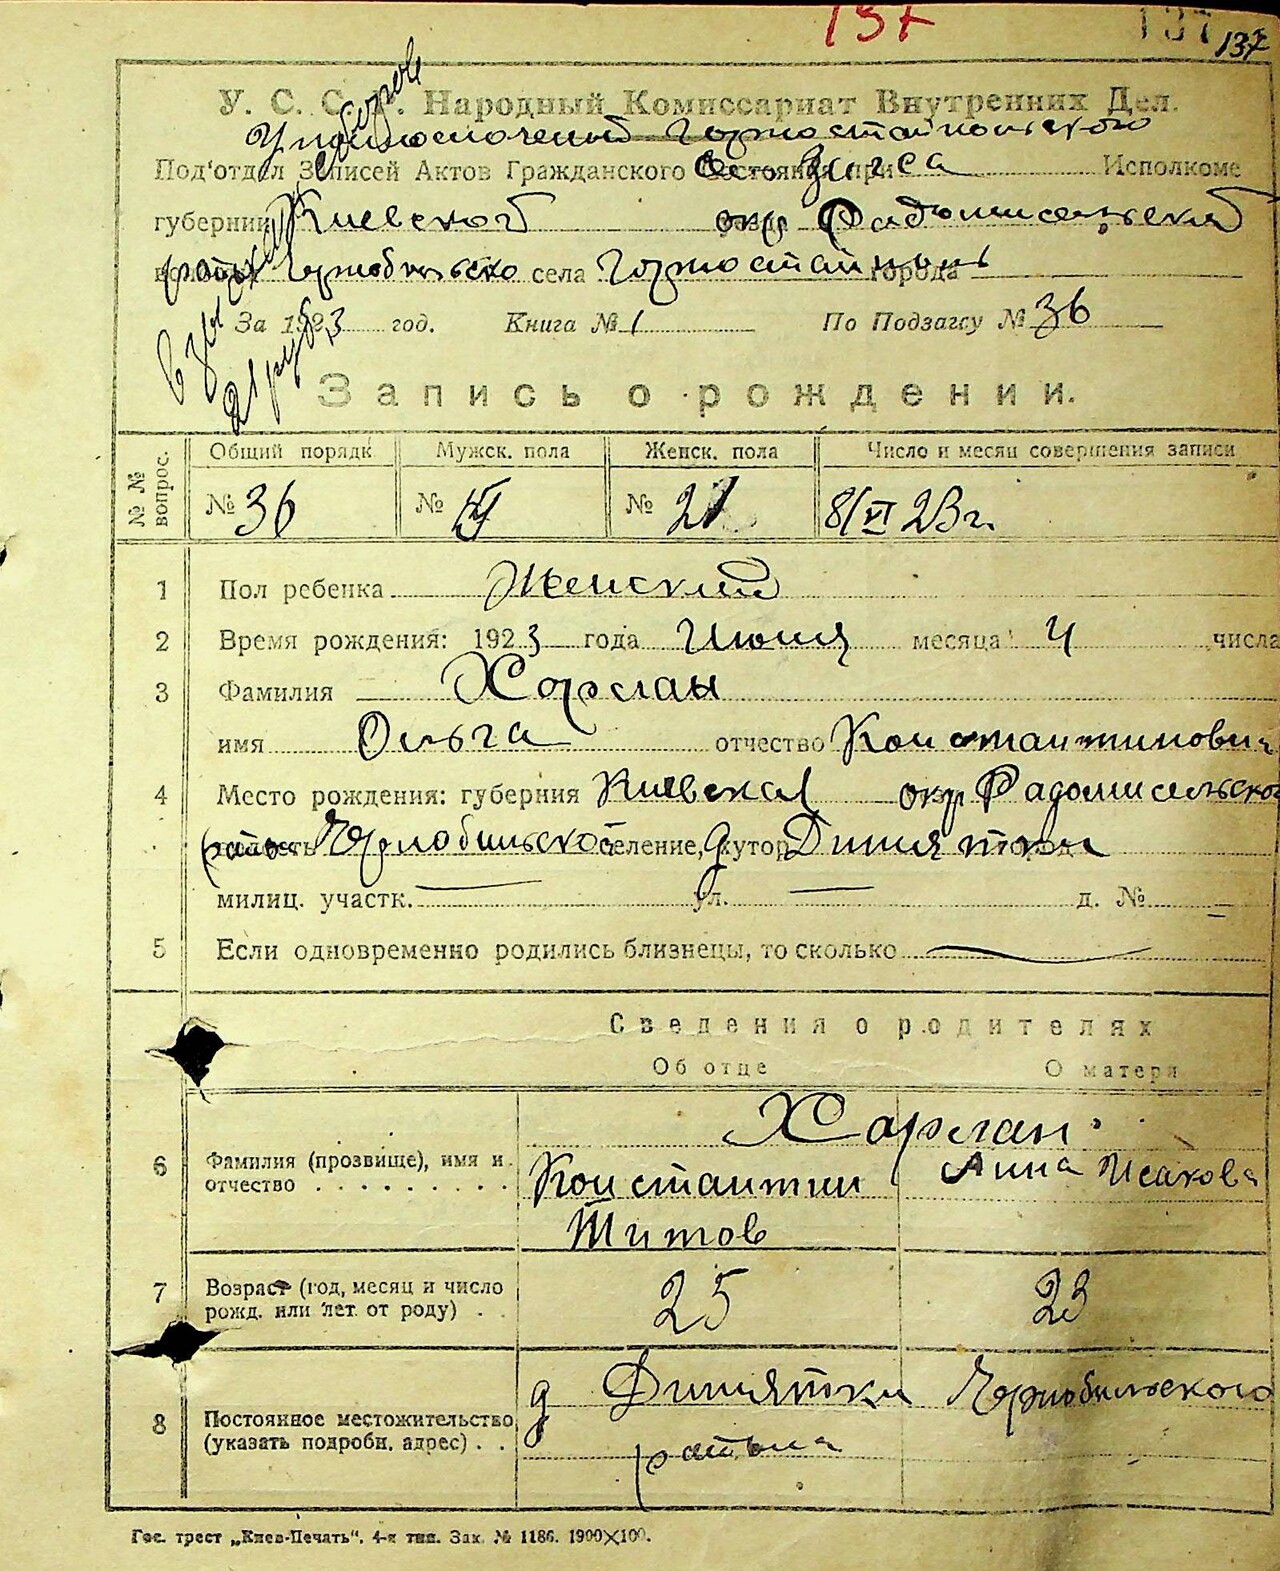 137
137
137
У. С. С. Р. Народный Комиссариат Внутренних Дел.
Уполномоченный Горностайпольского
Под'отдел Записей Актов Гражданского Состояния при Загса Исполкоме
губернии Киевской окр Радомисельской
района Чернобыльско села Горностайполь города
За 1923 год. Книга № 1 По Подзагсу № 36
21 руб
Запись о рождении.
№ № вопрос. Общий порядк Мужск. пола Женск. пола Число и месяц совершения записи
№ 36 № № 21 8/VI 23 г.
1 Пол ребенка Женский
2 Время рождения: 1923 года Июня месяца 4 числа
3 Фамилия Харлан
имя Ольга отчество Константинович
4 Место рождения: губерния Киевская окр Радомисельской
район Чернобыльской селение, хутор Дитятки город
милиц. участк. — ул. — д. № —
5 Если одновременно родились близнецы, то сколько —
Сведения о родителях
Об отце О матери
Харлан
6 Фамилия (прозвище), имя и отчество Константин Титов Анна Исакова
7 Возраст (год, месяц и число рожд. или лет от роду) 25 23
8 Постоянное местожительство (указать подробн. адрес) д Дитятки Чернобыльского района
Гос. трест „Киев-Печать“. 4-я тип. Зак. № 1186. 1900×100.